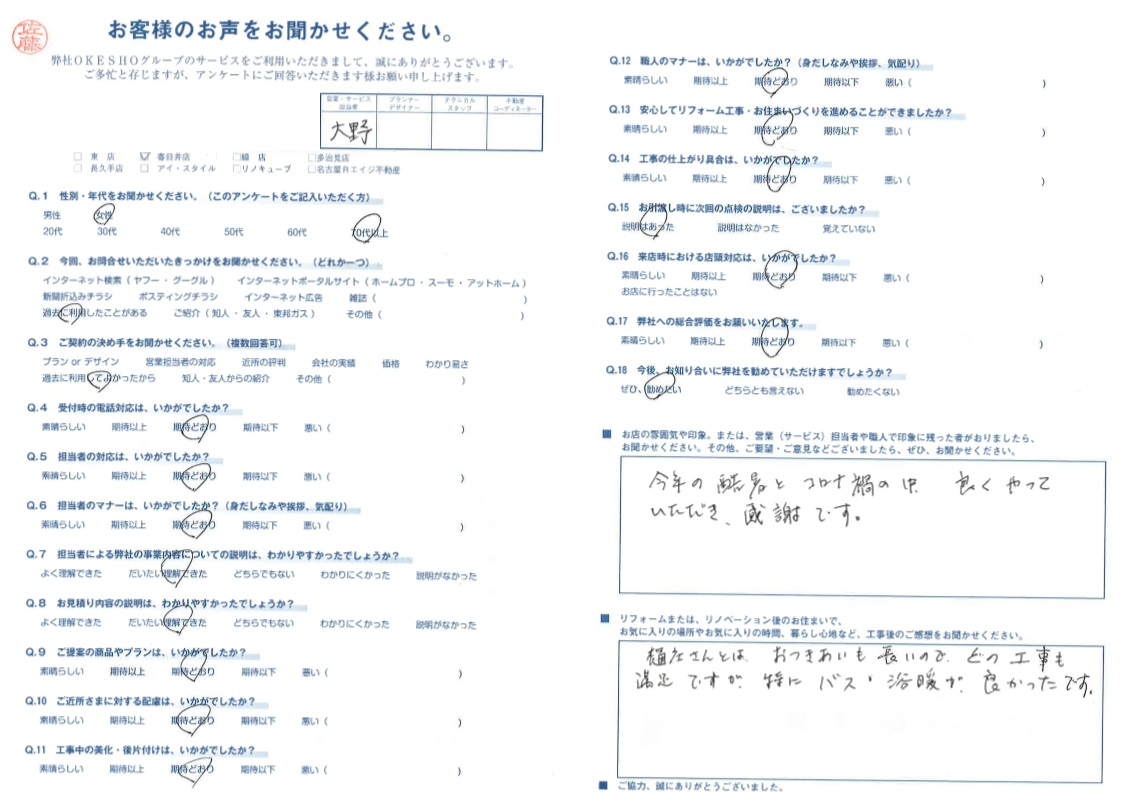 佐藤
お客様のお声をお聞かせください。
弊社ＯＫＥＳＨＯグループのサービスをご利用いただきまして、誠にありがとうございます。
ご多忙と存じますが、アンケートにご回答いただきます様お願い申し上げます。
営業・サービス担当者 プランナーデザイナー テクニカルスタッフ 不動産コーディネーター
大野
東 店 春日井店 緑 店 多治見店
長久手店 アイ・スタイル リノキューブ 名古屋Ｒエイジ不動産
Q.1 性別・年代をお聞かせください。（このアンケートをご記入いただく方）
男性 女性
20代 30代 40代 50代 60代 70代以上
Q.2 今回、お問合せいただいたきっかけをお聞かせください。（どれか一つ）
インターネット検索（ ヤフー ・ グーグル ） インターネットポータルサイト（ ホームプロ ・ スーモ ・ アットホーム ）
新聞折込みチラシ ポスティングチラシ インターネット広告 雑誌（ ）
過去に利用したことがある ご紹介（ 知人 ・ 友人 ・ 東邦ガス ） その他（ ）
Q.3 ご契約の決め手をお聞かせください。（複数回答可）
プラン or デザイン 営業担当者の対応 近所の評判 会社の実績 価格 わかり易さ
過去に利用してよかったから 知人・友人からの紹介 その他（ ）
Q.4 受付時の電話対応は、いかがでしたか？
素晴らしい 期待以上 期待どおり 期待以下 悪い（ ）
Q.5 担当者の対応は、いかがでしたか？
素晴らしい 期待以上 期待どおり 期待以下 悪い（ ）
Q.6 担当者のマナーは、いかがでしたか？（身だしなみや挨拶、気配り）
素晴らしい 期待以上 期待どおり 期待以下 悪い（ ）
Q.7 担当者による弊社の事業内容についての説明は、わかりやすかったでしょうか？
よく理解できた だいたい理解できた どちらでもない わかりにくかった 説明がなかった
Q.8 お見積り内容の説明は、わかりやすかったでしょうか？
よく理解できた だいたい理解できた どちらでもない わかりにくかった 説明がなかった
Q.9 ご提案の商品やプランは、いかがでしたか？
素晴らしい 期待以上 期待どおり 期待以下 悪い（ ）
Q.10 ご近所さまに対する配慮は、いかがでしたか？
素晴らしい 期待以上 期待どおり 期待以下 悪い（ ）
Q.11 工事中の美化・後片付けは、いかがでしたか？
素晴らしい 期待以上 期待どおり 期待以下 悪い（ ）
Q.12 職人のマナーは、いかがでしたか？（身だしなみや挨拶、気配り）
素晴らしい 期待以上 期待どおり 期待以下 悪い（ ）
Q.13 安心してリフォーム工事・お住まいづくりを進めることができましたか？
素晴らしい 期待以上 期待どおり 期待以下 悪い（ ）
Q.14 工事の仕上がり具合は、いかがでしたか？
素晴らしい 期待以上 期待どおり 期待以下 悪い（ ）
Q.15 お引渡し時に次回の点検の説明は、ございましたか？
説明はあった 説明はなかった 覚えていない
Q.16 来店時における店頭対応は、いかがでしたか？
素晴らしい 期待以上 期待どおり 期待以下 悪い（ ）
お店に行ったことはない
Q.17 弊社への総合評価をお願いいたします。
素晴らしい 期待以上 期待どおり 期待以下 悪い（ ）
Q.18 今後、お知り合いに弊社を勧めていただけますでしょうか？
ぜひ、勧めたい どちらとも言えない 勧めたくない
■ お店の雰囲気や印象。または、営業（サービス）担当者や職人で印象に残った者がおりましたら、
お聞かせください。その他、ご要望・ご意見などございましたら、ぜひ、お聞かせください。
今年の酷暑とコロナ禍の中 良くやって
いただき、感謝です。
■ リフォームまたは、リノベーション後のお住まいで、
お気に入りの場所やお気に入りの時間、暮らし心地など、工事後のご感想をお聞かせください。
桶庄さんとは、おつきあいも長いので、どの工事も
満足ですが、特にバス・浴暖が、良かったです。
■ ご協力、誠にありがとうございました。